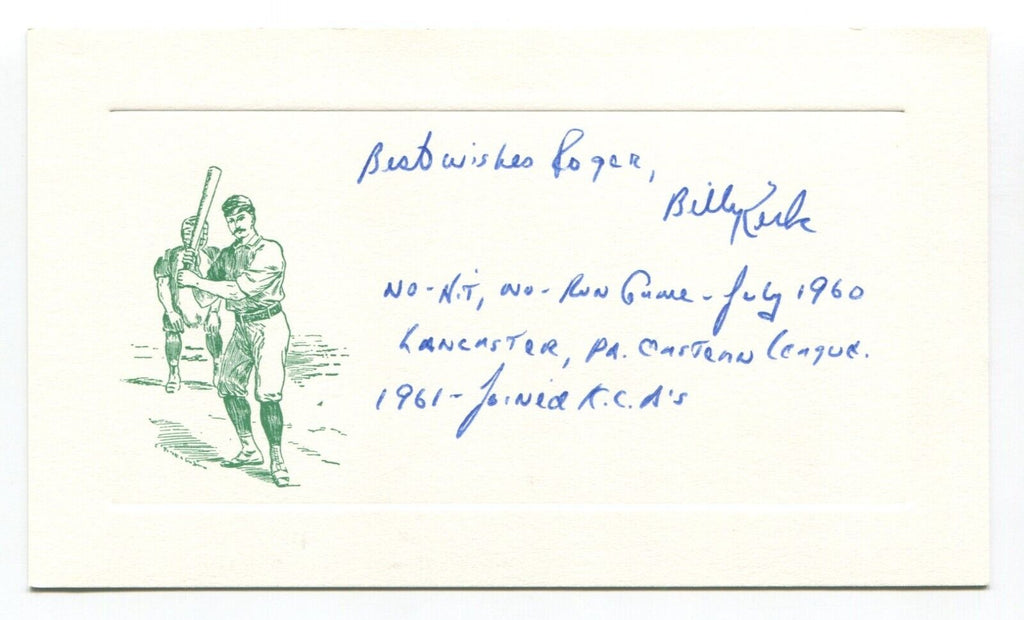 Best wishes Roger,
Billy Kirk
NO-HIT, NO-RUN Game - July 1960
LANCASTER, PA. EASTERN League.
1961 - Joined K.C. A's